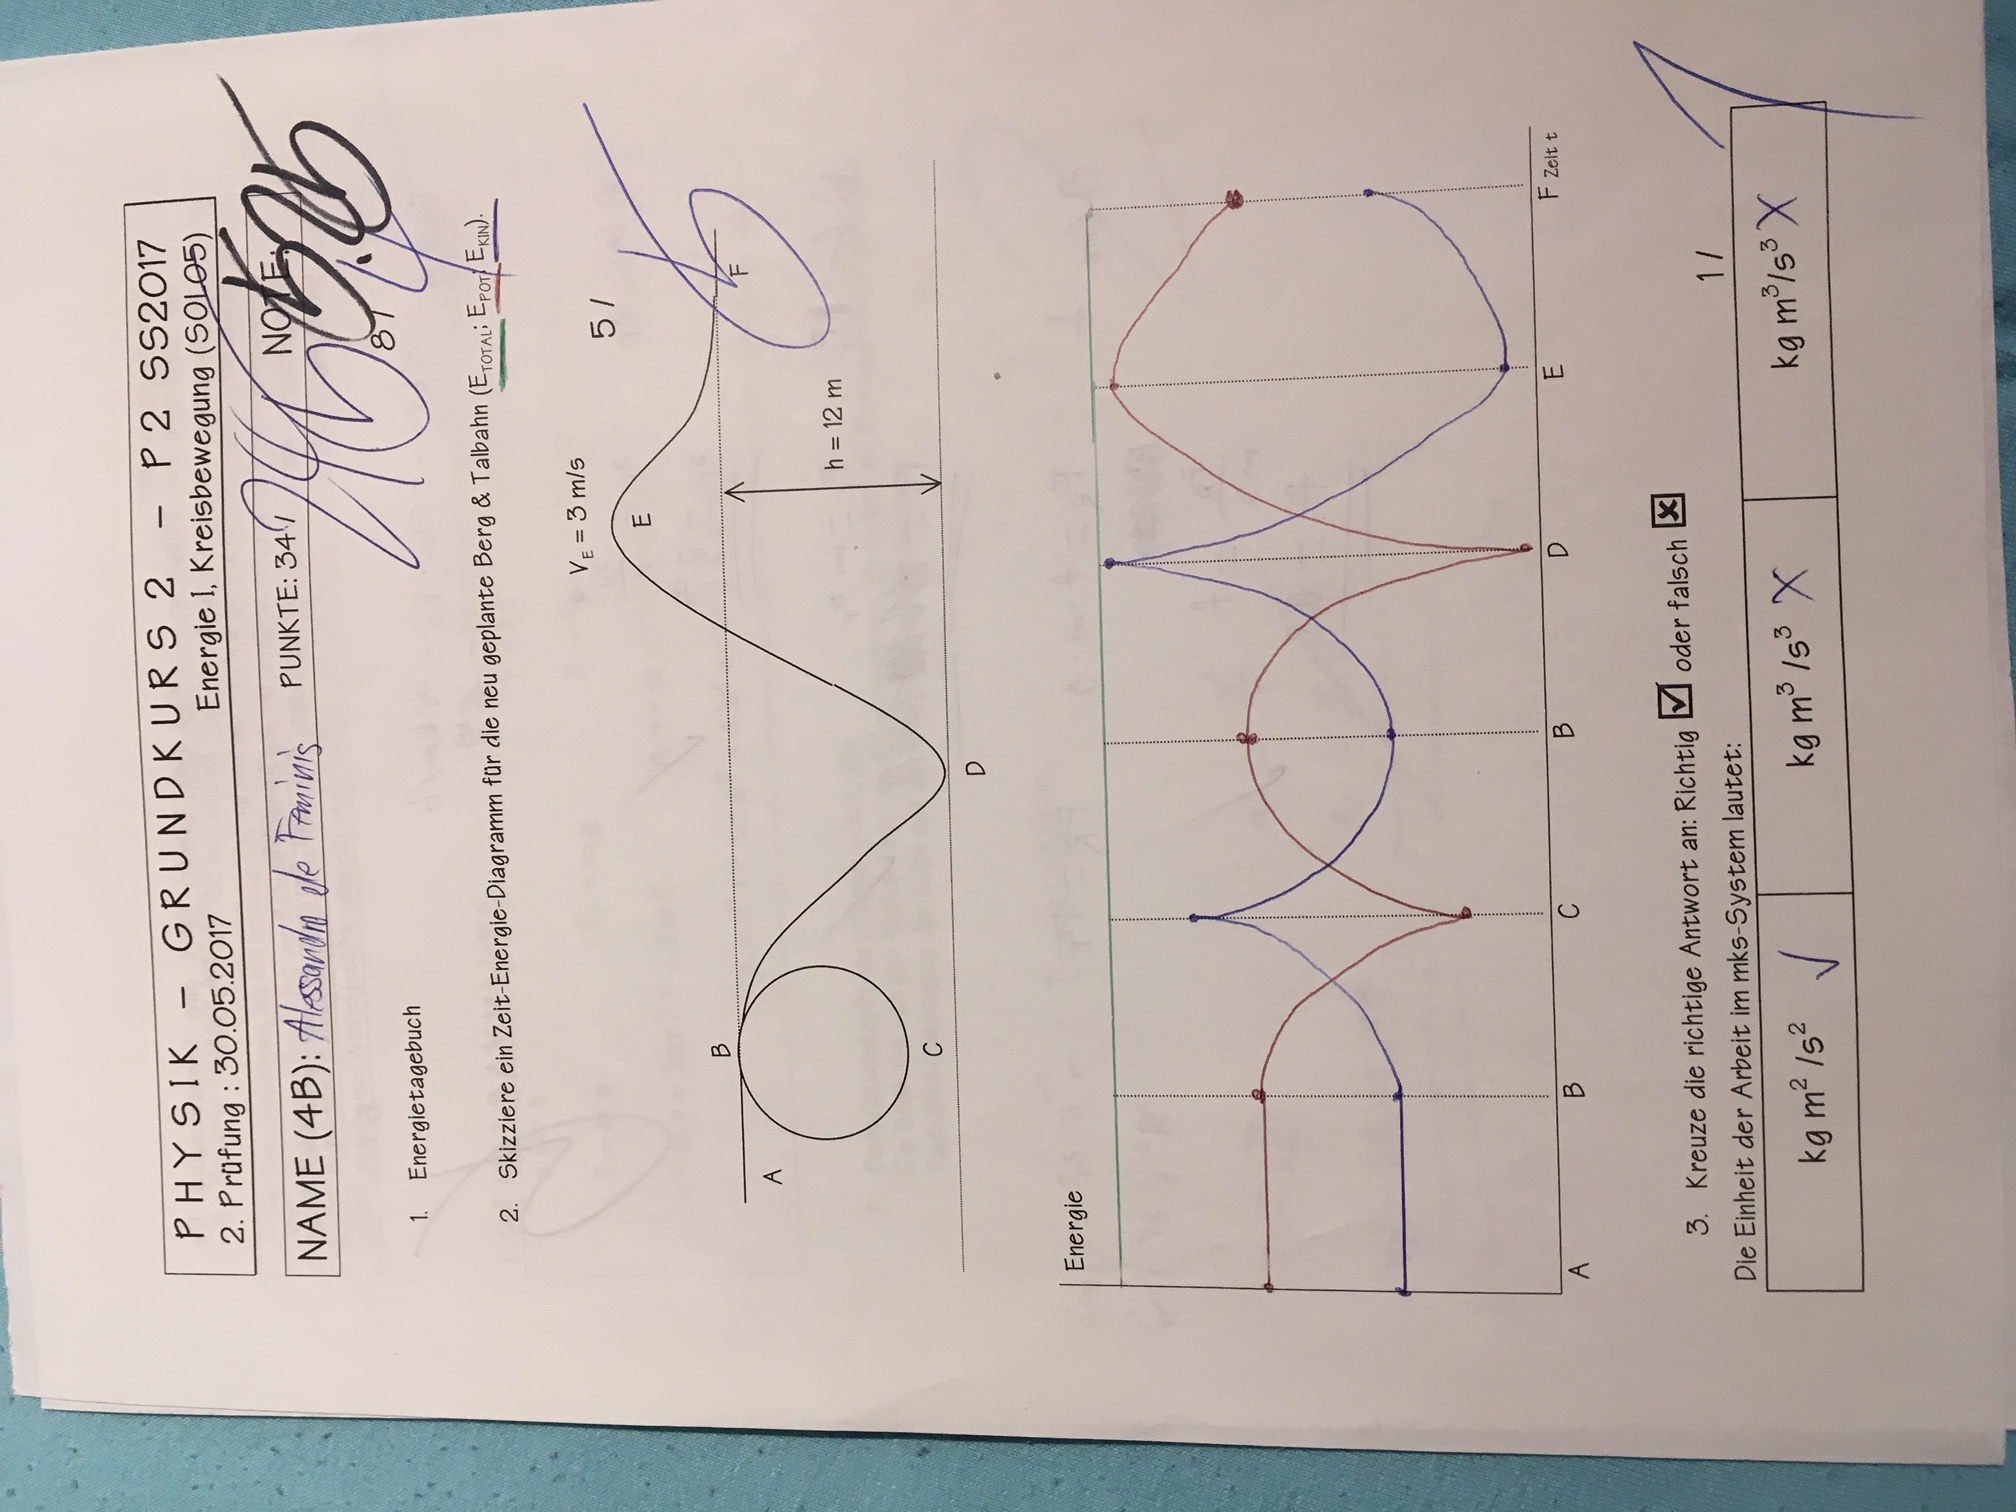 PHYSIK – GRUNDKURS 2 – P2 SS2017
2. Prüfung : 30.05.2017 Energie I, Kreisbewegung (SOL05)
NAME (4B): Alessandro de Feminis PUNKTE: 34 / NOTE: 5.25
8 / 4
1. Energietagebuch
2. Skizziere ein Zeit-Energie-Diagramm für die neu geplante Berg & Talbahn (E_TOTAL; E_POT; E_KIN).
V_E = 3 m/s
5 / 5
E
B
F
A
h = 12 m
C
D
Energie
A B C B D E F Zeit t
3. Kreuze die richtige Antwort an: Richtig ☑ oder falsch ☒
1 / 1
Die Einheit der Arbeit im mks-System lautet:
kg m² /s² ✓ kg m³ /s³ X kg m³/s³ X